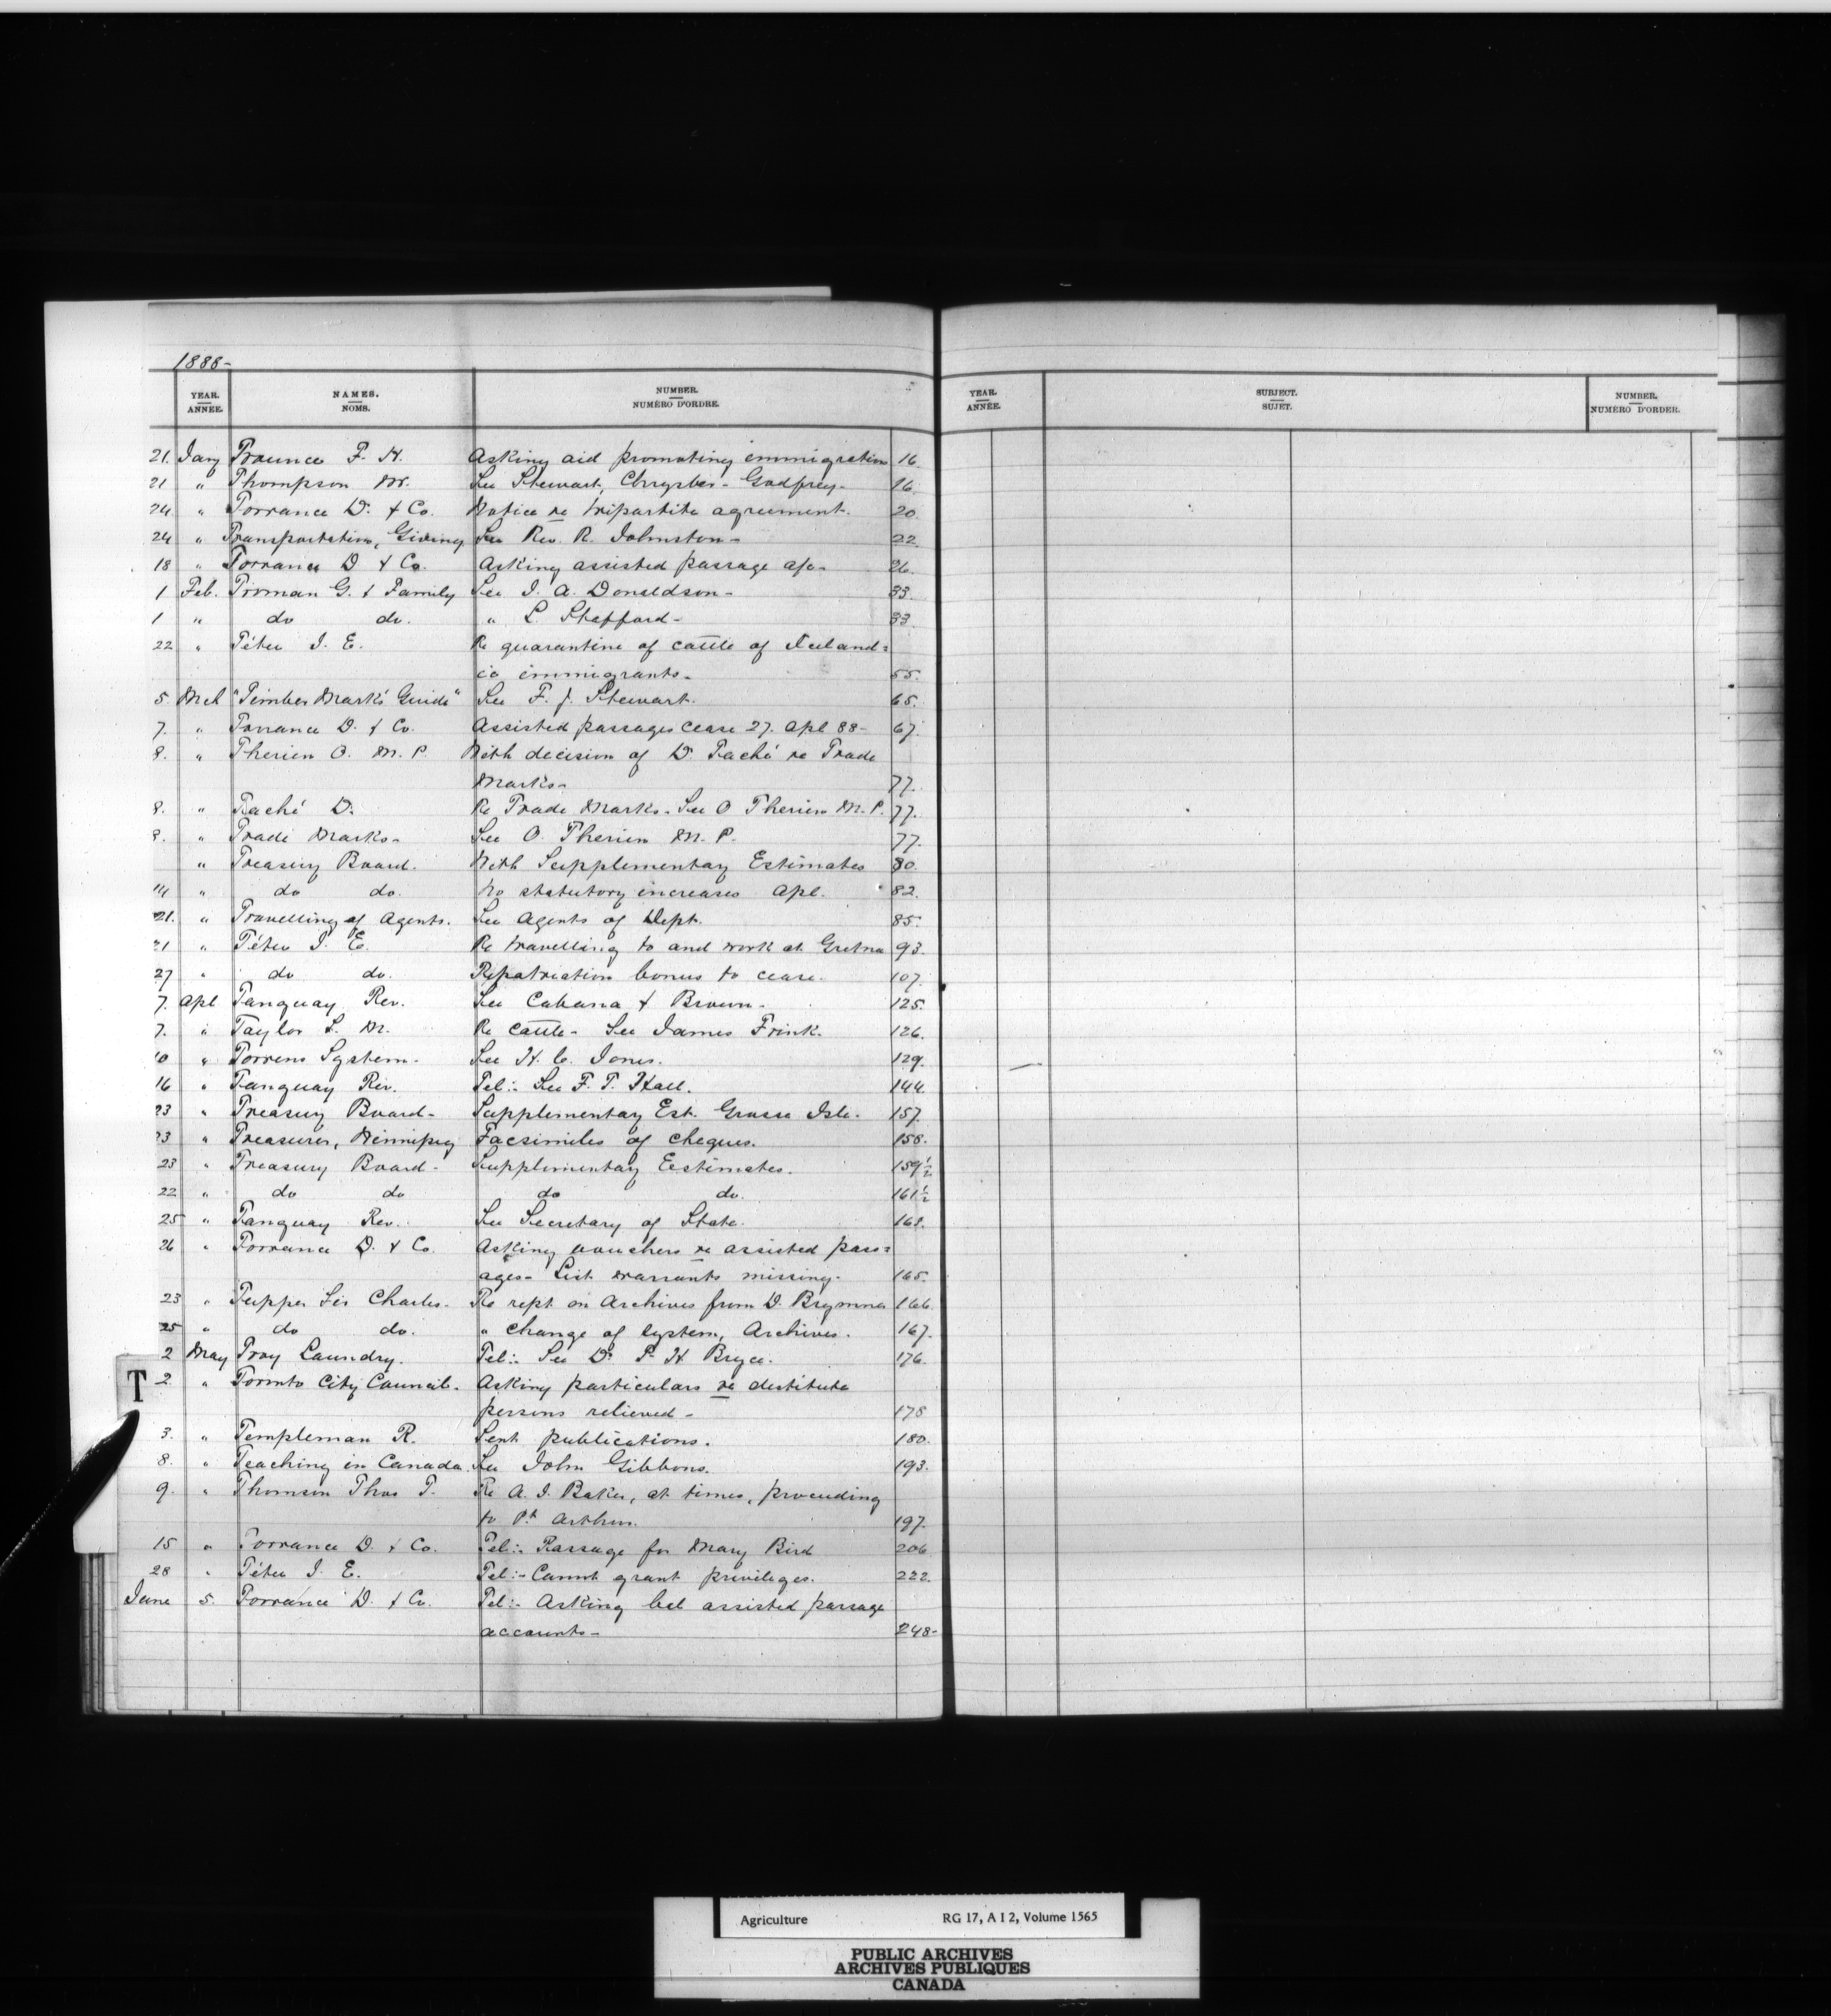 1888-
YEAR. ANNÉE. NAMES. NOMS. NUMBER. NUMÉRO D'ORDRE.
YEAR. ANNÉE. SUBJECT. SUJET. NUMBER. NUMÉRO D'ORDER.
21. Jany Trounce F. H. Asking aid promoting immigration 16
21 " Thompson M. See Stewart, Chrysler - Godfrey - 16.
24 " Torrance D. & Co. Notice re tripartite agreement. 20.
24 " Transportation, Giving See Rev. R. Johnston - 22
18 " Torrance D & Co. Asking assisted passage a/c - 26.
1 Feb. Troman G. & Family See J. A. Donaldson - 33.
1 " do do. " L. Stafford - 33
22 " Têtu J. E. Re quarantine of cattle of Iceland=
ic immigrants. 55.
5 Mch "Timber Marks Guide" See F. J. Stewart. 65.
7. " Torrance D. & Co. Assisted passages cease 27. Apl 88 - 67
8. " Therien O. M. P. With decision of D. Taché re Trade
Marks - 77.
8. " Taché D. Re Trade Marks. See O Therien M. P. 77.
8. " Trade Marks - See O. Therien M. P. 77.
" Treasury Board. With Supplementary Estimates 80.
14 " do do. No statutory increases Apl. 82.
21. " Travelling of Agents. See Agents of Dept. 85.
21 " Têtu J. E. Re travelling to and work at Gretna 93.
27 " do do. Repatriation bonus to cease. 107.
7. Apl Tanguay Rev. See Cabana & Brown - 125.
7. " Taylor L. M. Re cattle - See James Frink. 126.
10 " Torrens System. See H. C. Jones. 129.
16 " Tanguay Rev. Tel:- See F. T. Hall. 144.
23 " Treasury Board - Supplementary Est. Grosse Isle. 157.
23 " Treasurer, Winnipeg Facsimiles of cheques. 158.
23 " Treasury Board - Supplementary Estimates. 159½
22 " do do do do. 161½
25 " Tanguay Rev. See Secretary of State. 163.
26 " Torrance D. & Co. Asking vouchers re assisted pass=
ages - List warrants missing. 165.
23 " Tupper Sir Charles - Re rept on Archives from D. Brymner 166.
25 " do do. " change of system, Archives. 167.
2 May Troy Laundry. Tel:- See Dr P. H. Bryce. 176.
T
2 " Toronto City Council. Asking particulars re destitute
persons relieved - 178
3. " Templeman R. Sent publications. 180.
8. " Teaching in Canada. See John Gibbons. 193.
9. " Thomson Thos T. Re A. J. Baker, at times, proceeding
to Pt Arthur. 197.
15 " Torrance D. & Co. Tel:- Passage for Mary Bird 206
28 " Têtu J. E. Tel:- Cannot grant privileges. 222.
June 5. Torrance D. & Co. Tel:- Asking bal assisted passage
accounts - 248-
Agriculture RG 17, A I 2, Volume 1565
PUBLIC ARCHIVES
ARCHIVES PUBLIQUES
CANADA